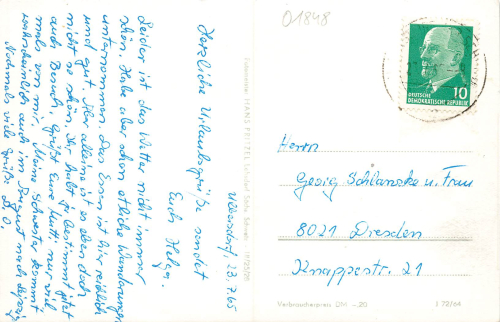 Wiesdorf, 23.7.65
Herzliche Urlaubsgrüße sendet
Euch Helga.
Leider ist das Wetter nicht immer
schön. Habe aber schon etliche Wanderungen
unternommen. Das Essen ist hier reichlich
und gut. Hier alleine ist es eben doch
nicht so schön. Ihr habt ja bestimmt jetzt
auch Besuch. Grüßt Eure Mutti nur viel-
mals von mir. Meine Schwester kommt
wahrscheinlich auch im August nach
Nochmals viele Grüße D.O.
Fotomeister HANS PRITZEL
III/25/28
01848
DEUTSCHE
DEMOKRATISCHE REPUBLIK
10
Herrn
Georg Schlanske u. Frau
8021 Dresden
Knappestr. 21
Verbraucherpreis DM -.20
J 72/64